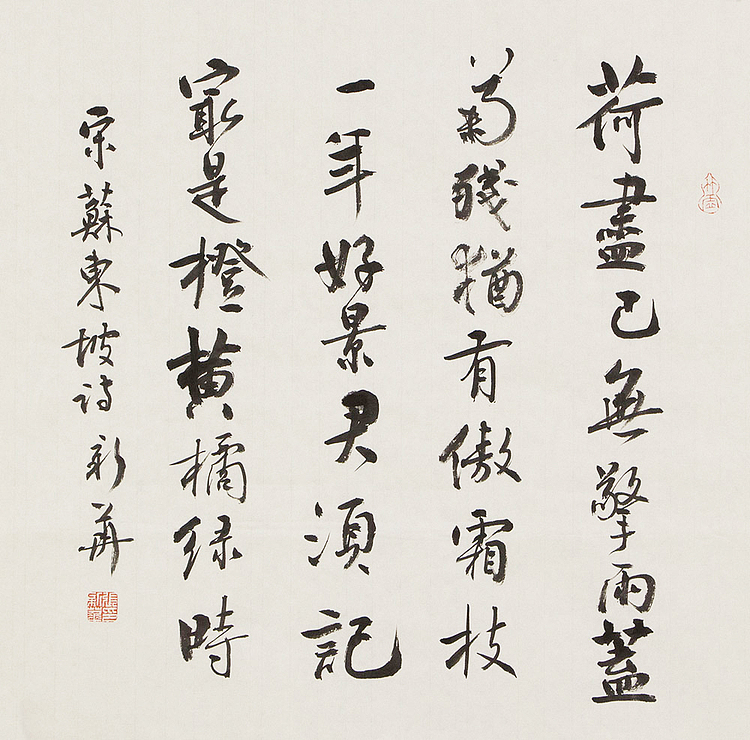 荷盡已無擎雨蓋
菊殘猶有傲霜枝
一年好景君須記
最是橙黄橘绿時
宋蘇東坡詩 新華